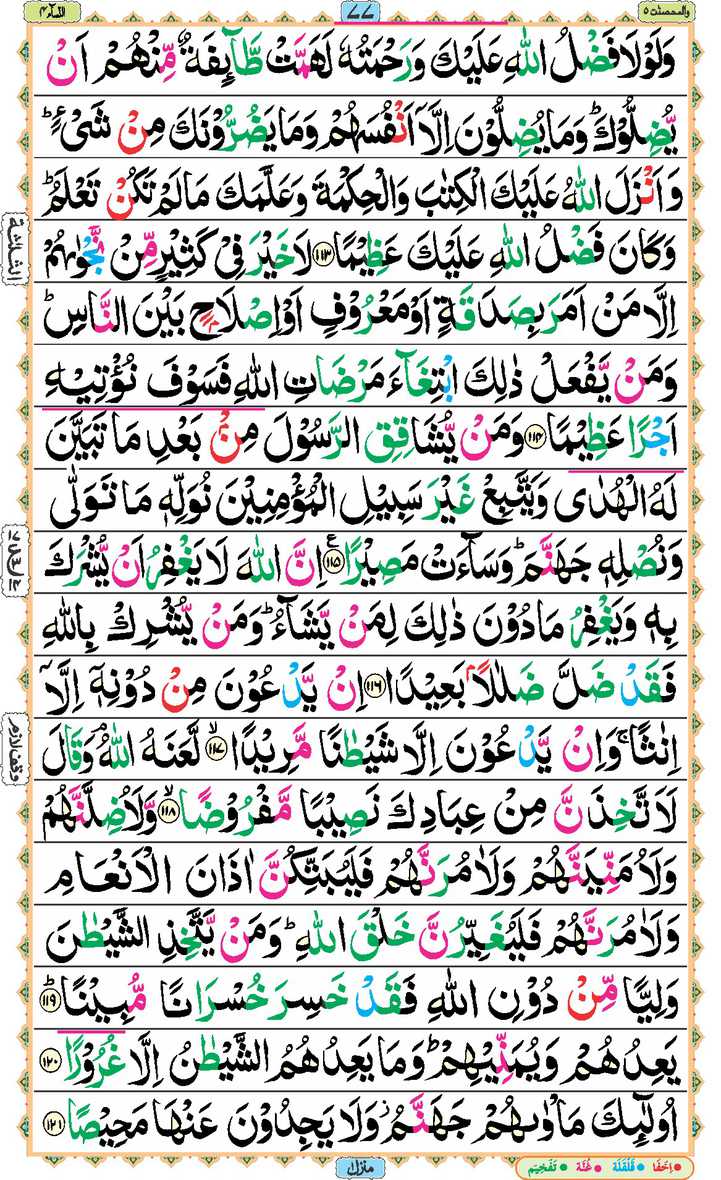 والمحصنت ۵
۷۷
النساء ۴
وَلَوْلَا فَضْلُ اللّٰهِ عَلَيْكَ وَرَحْمَتُهٗ لَهَمَّتْ طَّآئِفَةٌ مِّنْهُمْ اَنْ
يُّضِلُّوْكَ ؕ وَمَا يُضِلُّوْنَ اِلَّاۤ اَنْفُسَهُمْ وَمَا يَضُرُّوْنَكَ مِنْ شَیْءٍ ؕ
وَاَنْزَلَ اللّٰهُ عَلَيْكَ الْكِتٰبَ وَالْحِكْمَةَ وَعَلَّمَكَ مَا لَمْ تَكُنْ تَعْلَمُ ؕ
وَكَانَ فَضْلُ اللّٰهِ عَلَيْكَ عَظِيْمًا ﴿۱۱۳﴾ لَا خَيْرَ فِیْ كَثِيْرٍ مِّنْ نَّجْوٰىهُمْ
اِلَّا مَنْ اَمَرَ بِصَدَقَةٍ اَوْ مَعْرُوْفٍ اَوْ اِصْلَاحٍۭ بَيْنَ النَّاسِ ؕ
وَمَنْ يَّفْعَلْ ذٰلِكَ ابْتِغَآءَ مَرْضَاتِ اللّٰهِ فَسَوْفَ نُؤْتِيْهِ
اَجْرًا عَظِيْمًا ﴿۱۱۴﴾ وَمَنْ يُّشَاقِقِ الرَّسُوْلَ مِنْۢ بَعْدِ مَا تَبَيَّنَ
لَهُ الْهُدٰى وَيَتَّبِعْ غَيْرَ سَبِيْلِ الْمُؤْمِنِيْنَ نُوَلِّهٖ مَا تَوَلّٰى
وَنُصْلِهٖ جَهَنَّمَ ؕ وَسَآءَتْ مَصِيْرًا ﴿۱۱۵﴾ اِنَّ اللّٰهَ لَا يَغْفِرُ اَنْ يُّشْرَكَ
بِهٖ وَيَغْفِرُ مَا دُوْنَ ذٰلِكَ لِمَنْ يَّشَآءُ ؕ وَمَنْ يُّشْرِكْ بِاللّٰهِ
فَقَدْ ضَلَّ ضَلٰلًاۢ بَعِيْدًا ﴿۱۱۶﴾ اِنْ يَّدْعُوْنَ مِنْ دُوْنِهٖۤ اِلَّاۤ
اِنٰثًا ۚ وَاِنْ يَّدْعُوْنَ اِلَّا شَيْطٰنًا مَّرِيْدًا ۙ﴿۱۱۷﴾ لَّعَنَهُ اللّٰهُ ۘ وَقَالَ
لَاَتَّخِذَنَّ مِنْ عِبَادِكَ نَصِيْبًا مَّفْرُوْضًا ۙ﴿۱۱۸﴾ وَّلَاُضِلَّنَّهُمْ
وَلَاُمَنِّيَنَّهُمْ وَلَاٰمُرَنَّهُمْ فَلَيُبَتِّكُنَّ اٰذَانَ الْاَنْعَامِ
وَلَاٰمُرَنَّهُمْ فَلَيُغَيِّرُنَّ خَلْقَ اللّٰهِ ؕ وَمَنْ يَّتَّخِذِ الشَّيْطٰنَ
وَلِيًّا مِّنْ دُوْنِ اللّٰهِ فَقَدْ خَسِرَ خُسْرَانًا مُّبِيْنًا ؕ﴿۱۱۹﴾
يَعِدُهُمْ وَيُمَنِّيْهِمْ ؕ وَمَا يَعِدُهُمُ الشَّيْطٰنُ اِلَّا غُرُوْرًا ﴿۱۲۰﴾
اُولٰٓئِكَ مَاْوٰىهُمْ جَهَنَّمُ ؗ وَلَا يَجِدُوْنَ عَنْهَا مَحِيْصًا ﴿۱۲۱﴾
وقف لازم
منزل
اِخفَا قَلْقَلَة غُنَّة تَفْخِيْم